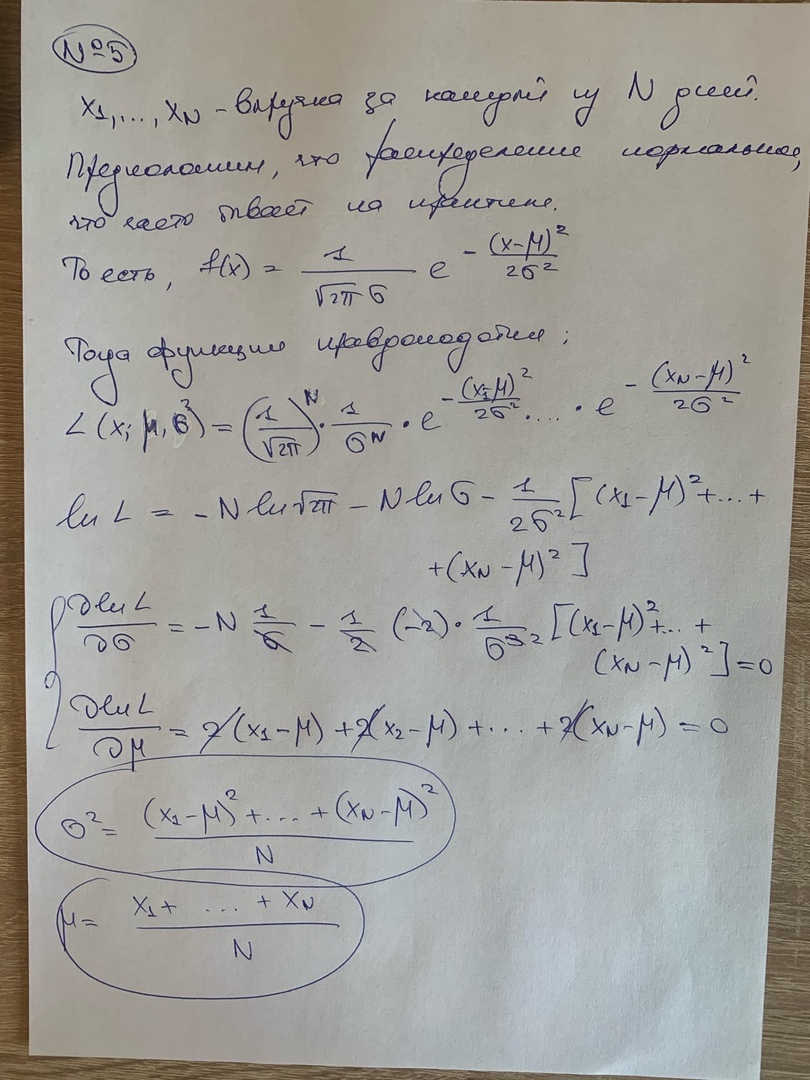 №5
x₁,...,x_N - выручка за каждый из N дней.
Предположим, что распределение нормальное,
что часто бывает на практике.
То есть, f(x) = 1/(√2π σ) e^(-(x-μ)²/2σ²)
Тогда функция правдоподобия:
L(x; μ, σ²) = (1/√2π)^N · 1/σ^N · e^(-(x₁-μ)²/2σ²) · ... · e^(-(x_N-μ)²/2σ²)
ln L = -N ln√2π - N lnσ - 1/2σ² [(x₁-μ)²+...+
+(x_N-μ)²]
∂lnL/∂σ = -N 1/σ - 1/2 (-2) · 1/σ³ ² [(x₁-μ)²+...+
(x_N-μ)²] = 0
∂lnL/∂μ = 2(x₁-μ) + 2(x₂-μ) + ... + 2(x_N-μ) = 0
σ² = ((x₁-μ)²+...+(x_N-μ)²)/N
μ = (x₁+ ... + x_N)/N